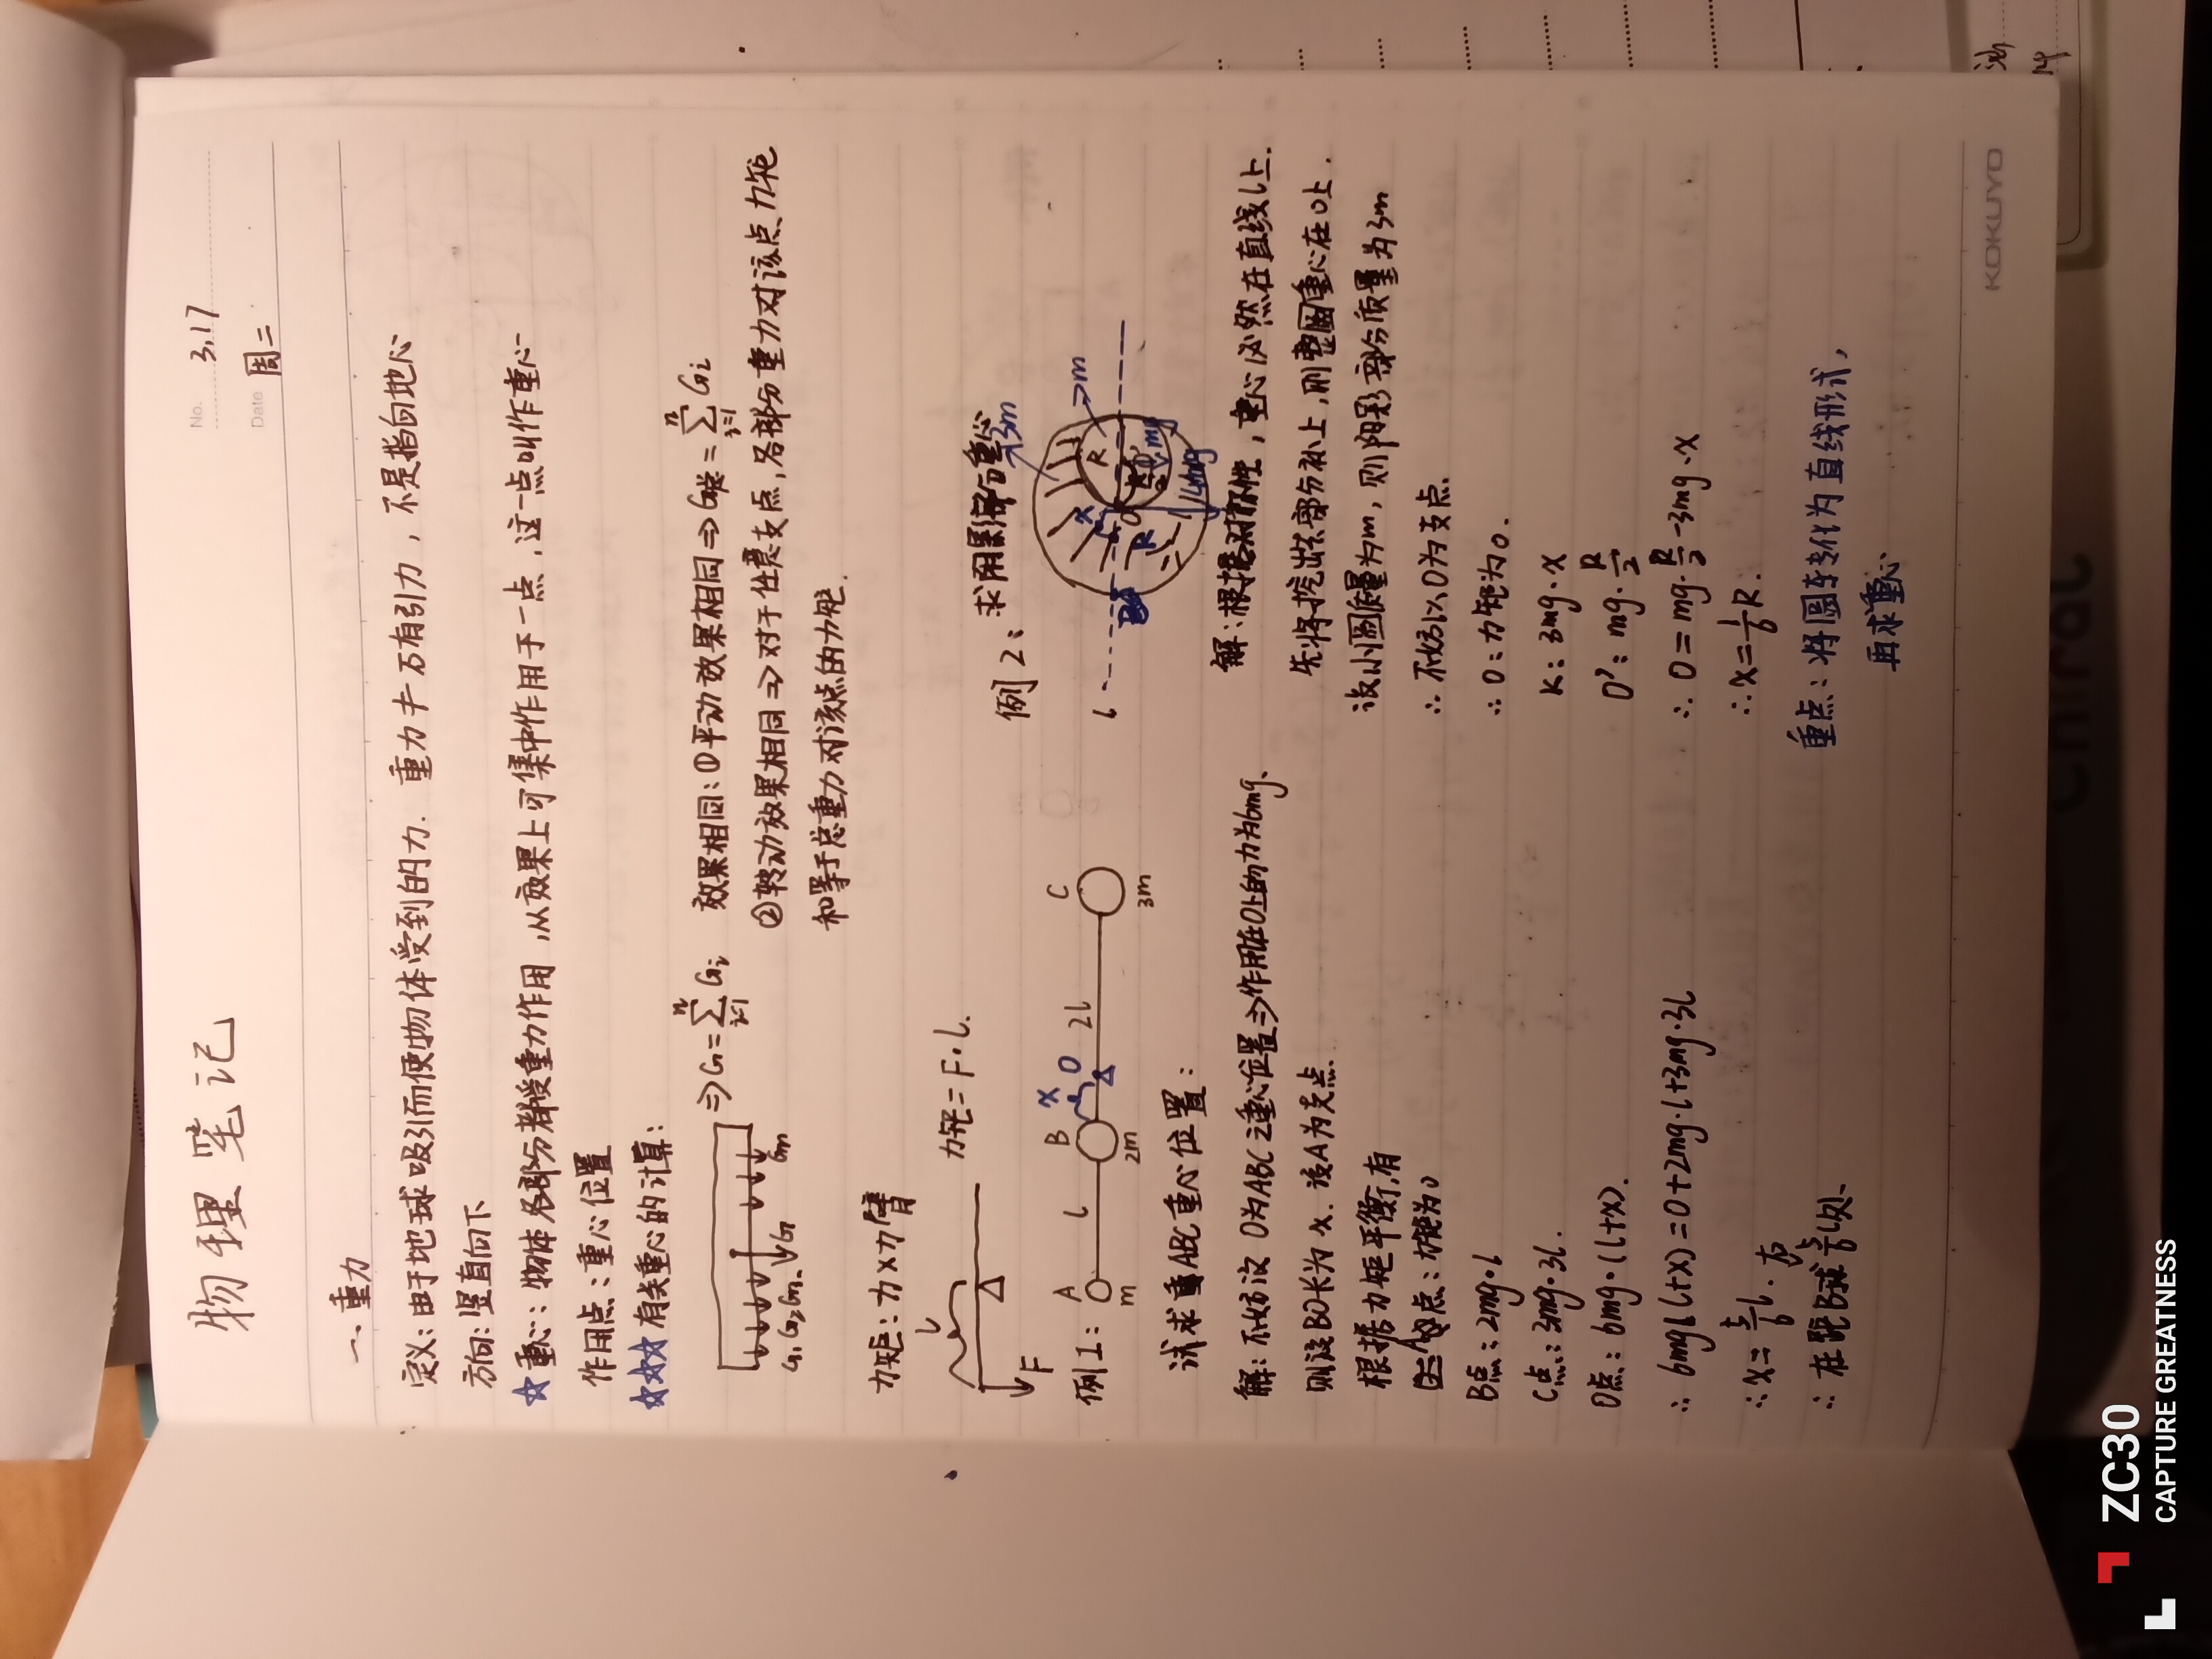 物理笔记
No. 3.17
Date 周二
一、重力
定义:由于地球吸引而使物体受到的力. 重力≠万有引力, 不是指向地心
方向:竖直向下
☆重心:物体各部分都受重力作用,从效果上可集中作用于一点,这一点叫作重心
作用点:重心位置
☆☆☆有关重心的计算:
⇒G=∑Gi n i=1
G1 G2 G3 G Gn
效果相同:①平动效果相同⇒G总=∑Gi n i=1
②转动效果相同⇒对于任意支点,各部分重力对该点力矩
和等于总重力对该点的力矩.
力矩:力×力臂
力矩=F·L.
L
F
例1:
A l B x O 2l C
m 2m 3m
试求ABC重心位置:
解:不妨设O为ABC之重心位置⇒作用在O上的力为6mg、
则设BO长为x. 设A为支点.
根据力矩平衡,有
A点:力矩为0
B点:2mg·l
C点:3mg·3l.
O点:6mg·(l+x).
∴6mg(l+x)=0+2mg·l+3mg·3l
∴x=5/6 l.
∴在距B球右5/6 l处、
例2:求阴影部分重心
3m
m
R
x
O
R
mg
4mg
l
解:根据对称性,重心必然在直线l上.
先将挖去部分补上,则整圆重心在O上.
设小圆质量为m,则阴影部分质量为3m
∴不妨以O为支点.
∴O:力矩为0.
K:3mg·x
O':mg·R/2
∴0=mg·R/2-3mg·x
∴x=1/6 R.
重点:将圆转化为直线形式,
再求重心
KOKUYO
ZC30
CAPTURE GREATNESS